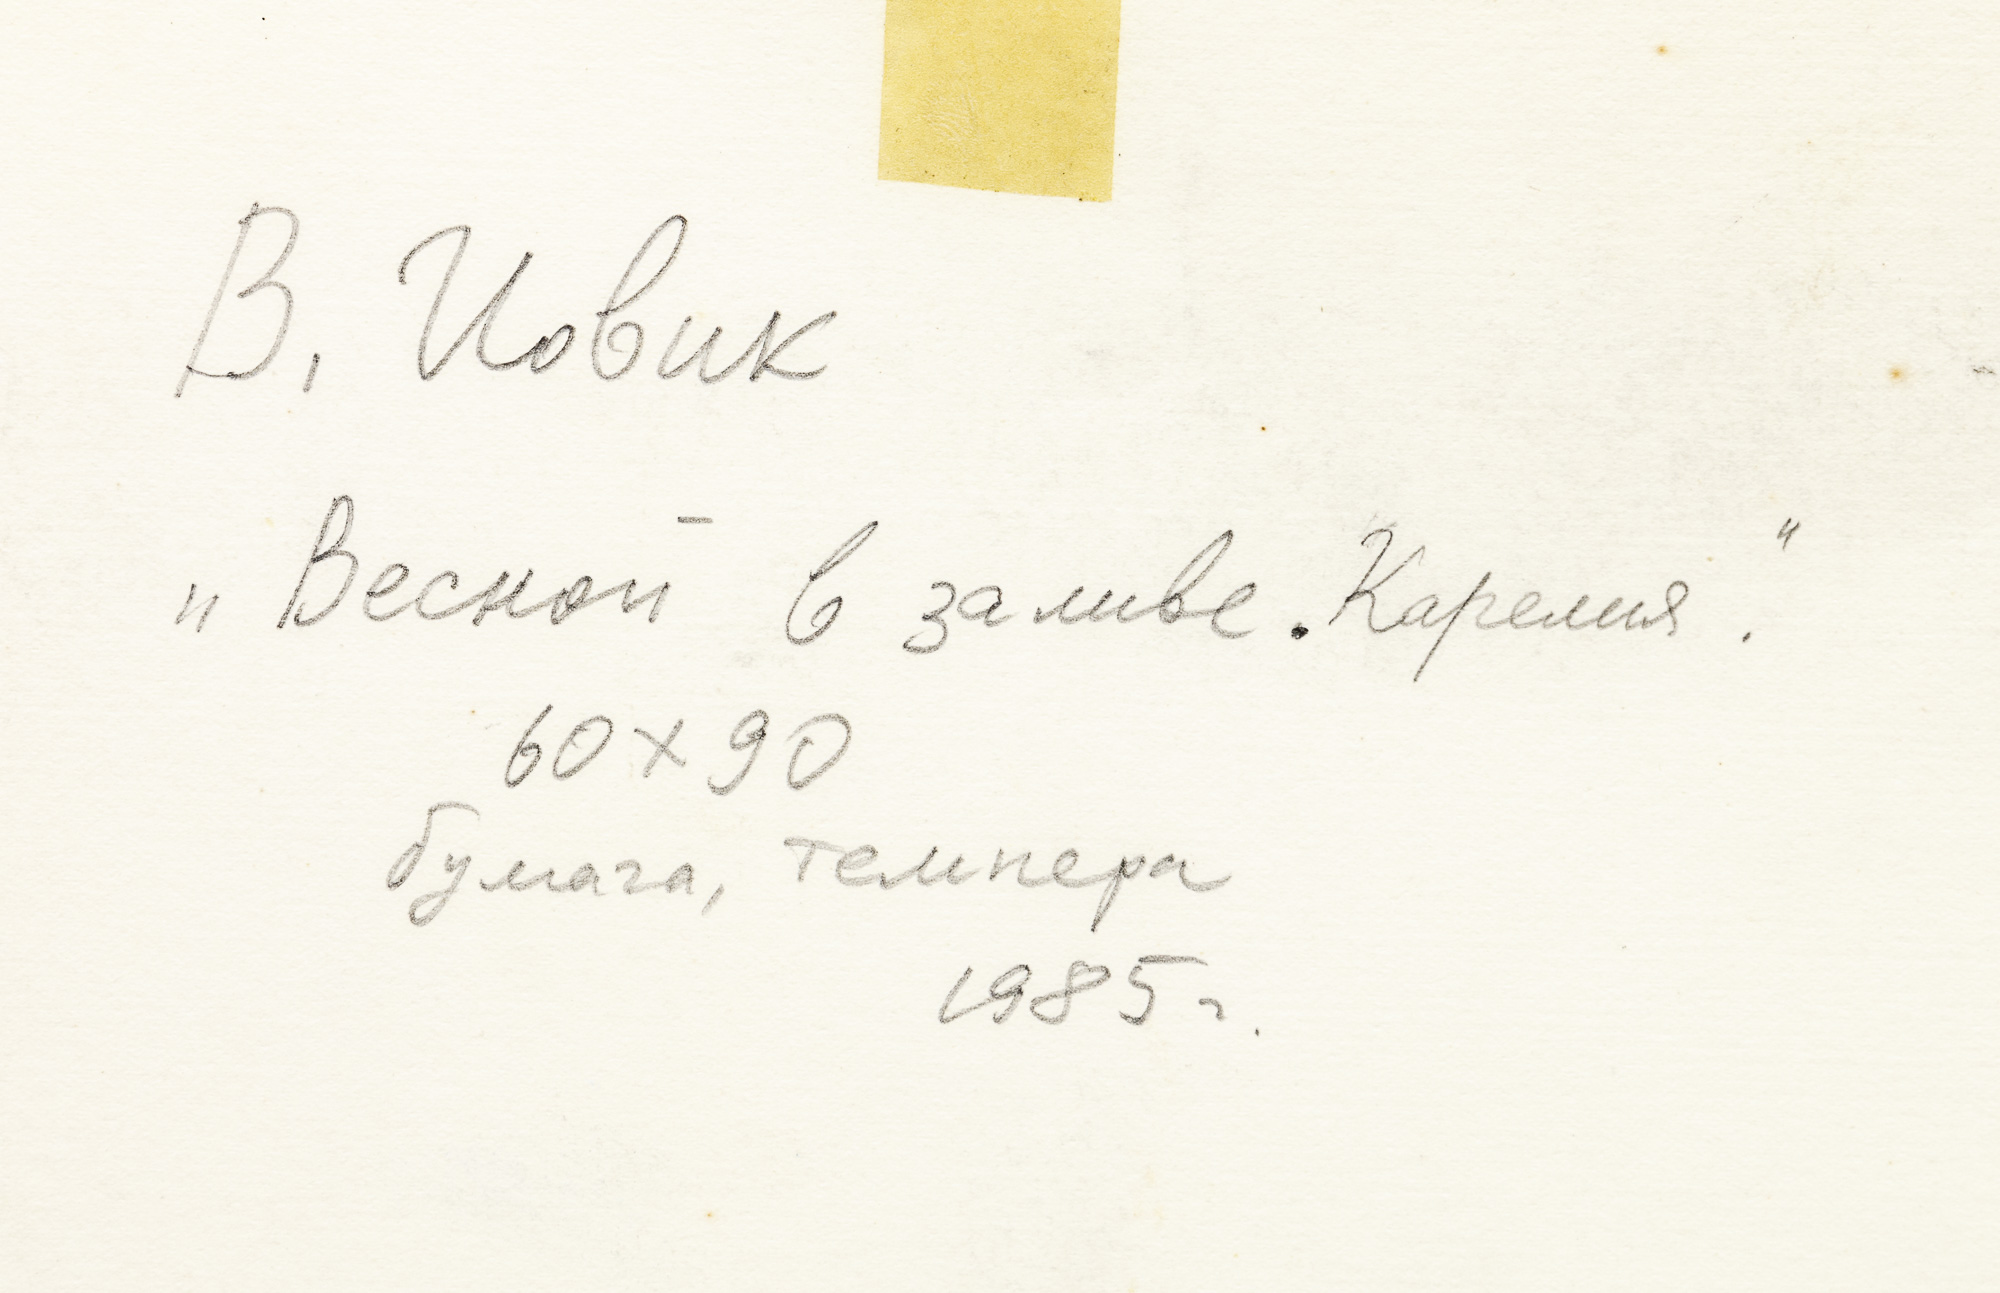 В. Иовик
„Весной в заливе. Карелия."
60 х 90
бумага, темпера
1985 г.